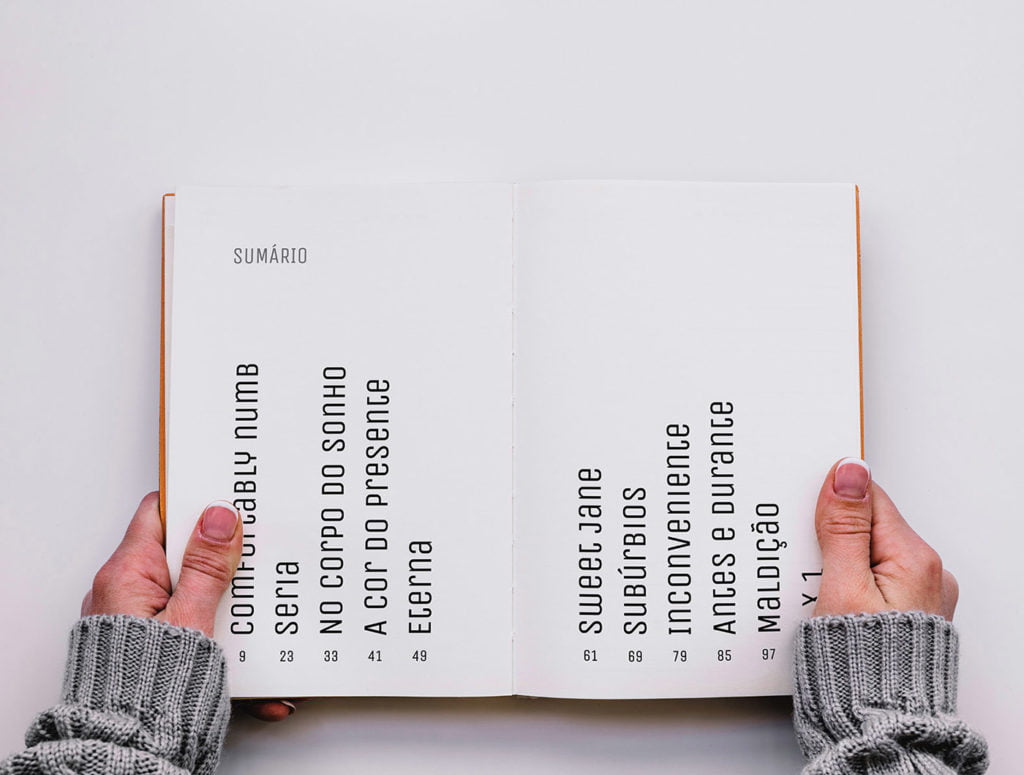 SUMÁRIO
Comfortably Numb
9
Seria
23
No corpo do sonho
33
A cor do presente
41
Eterna
49
Sweet Jane
61
Subúrbios
69
Inconveniente
79
Antes e durante
85
Maldição
97